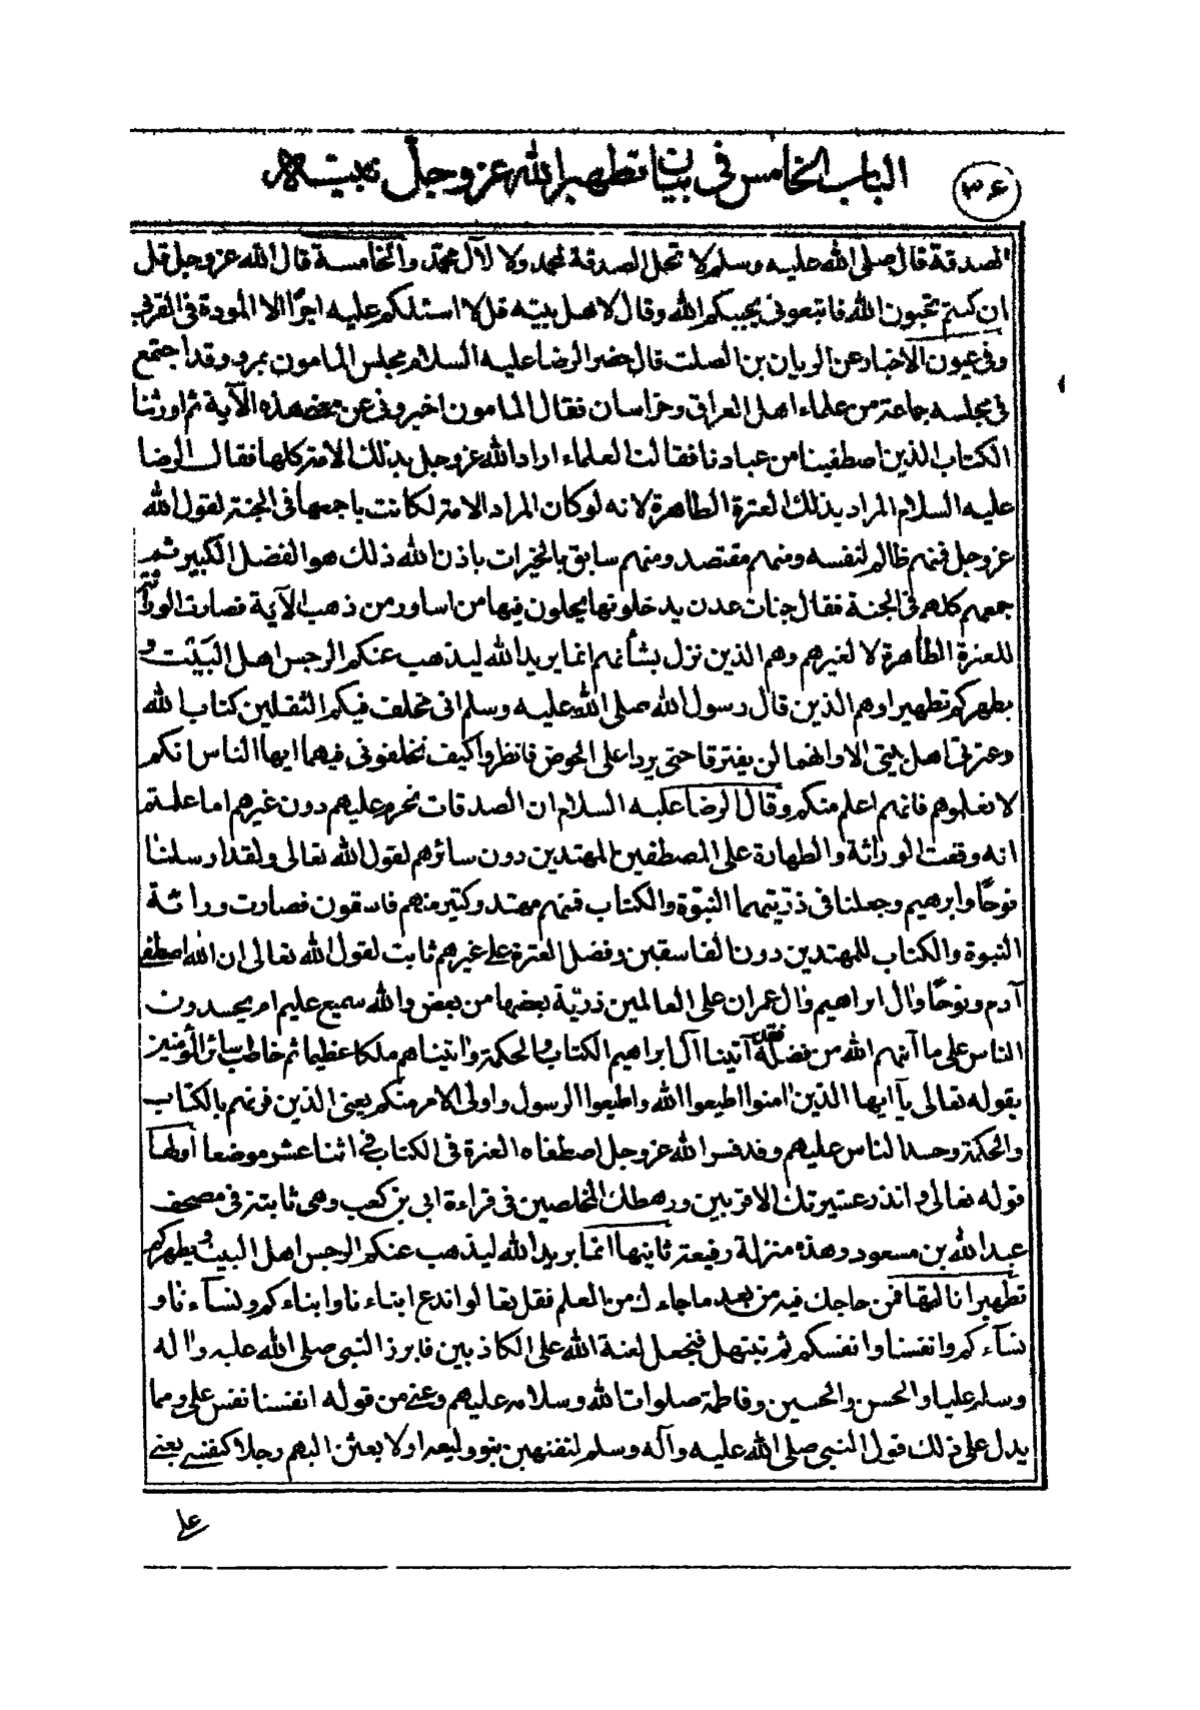 ٣٤
الباب الخامس فى بيان تطهير الله عز وجل نبيته
الصدقة قال صلى الله عليه وسلم لا تحل الصدقة لمحمد ولا لآل محمد والخامسة قال الله عز وجل قل
ان كنتم تحبون الله فاتبعونى يحببكم الله وقال لاهل بيته قل لا اسئلكم عليه اجرًا الا المودة فى القربى
وفى عيون الاخبار عن الريان بن الصلت قال حضر الرضا عليه السلام مجلس المامون بمرو وقد اجتمع
فى مجلسه جماعة من علماء اهل العراق وخراسان فقال المامون اخبرونى عن معنى هذه الآية ثم اورثنا
الكتاب الذين اصطفينا من عبادنا فقالت العلماء اراد الله عز وجل بذلك الامة كلها فقال الرضا
عليه السلام المراد بذلك العترة الطاهرة لانه لو كان المراد الامة لكانت باجمعها فى الجنة لقول الله
عز وجل فمنهم ظالم لنفسه ومنهم مقتصد ومنهم سابق بالخيرات باذن الله ذلك هو الفضل الكبير ثم
جمعهم كلهم فى الجنة فقال جنات عدن يدخلونها يحلون فيها من اساور من ذهب الآية فصارت الوراثة
للعترة الطاهرة لا لغيرهم وهم الذين نزل بشأنهم انما يريد الله ليذهب عنكم الرجس اهل البيت و
يطهركم تطهيرا وهم الذين قال رسول الله صلى الله عليه وسلم انى مخلف فيكم الثقلين كتاب الله
وعترتى اهل بيتى الا وانهما لن يفترقا حتى يردا على الحوض فانظروا كيف تخلفونى فيهما ايها الناس انكم
لا تعلموهم فانهم اعلم منكم وقال الرضا عليه السلام ان الصدقات تحرم عليهم دون غيرهم اما علمتم
انه وقعت الوراثة والطهارة على المصطفين المهتدين دون سائرهم لقول الله تعالى ولقد ارسلنا
نوحًا وابرهيم وجعلنا فى ذريتهما النبوة والكتاب فمنهم مهتد وكثير منهم فاسقون فصارت وراثة
النبوة والكتاب للمهتدين دون الفاسقين وفضل العترة على غيرهم ثابت لقول الله تعالى ان الله اصطفى
آدم ونوحًا وال ابراهيم وال عمران على العالمين ذرية بعضها من بعض والله سميع عليم ام يحسدون
الناس على ما آتيهم الله من فضله فقد آتينا آل ابراهيم الكتاب والحكمة واتيناهم ملكا عظيما ثم خاطب سائر المؤمنين
بقوله تعالى يآ ايها الذين امنوا اطيعوا الله واطيعوا الرسول واولى الامر منكم يعنى الذين قرنهم بالكتاب
والحكمة وحسد الناس عليهم وقد فسر الله عز وجل اصطفاه العترة فى الكتاب فى اثنا عشر موضعا اولها
قوله تعالى وانذر عشيرتك الاقربين ورهطك المخلصين فى قراءة ابى بن كعب وهى ثابتة فى مصحف
عبد الله بن مسعود وهذه منزلة رفيعة ثانيها انما يريد الله ليذهب عنكم الرجس اهل البيت ويطهركم
تطهيرا ثالثها فمن حاجك فيه من بعد ما جاءك من العلم فقل تعالوا ندع ابناءنا وابناءكم ونسآءنا و
نسآءكم وانفسنا وانفسكم ثم نبتهل فنجعل لعنة الله على الكاذبين فابرز النبى صلى الله عليه واله
وسلم عليا والحسن والحسين وفاطمة صلوات الله وسلامه عليهم وعنى من قوله انفسنا نفس على ومما
يدل على ذلك قول النبى صلى الله عليه وآله وسلم لتنتهين بنو وليعه او لابعثن اليهم رجلا كنفسى يعنى
على